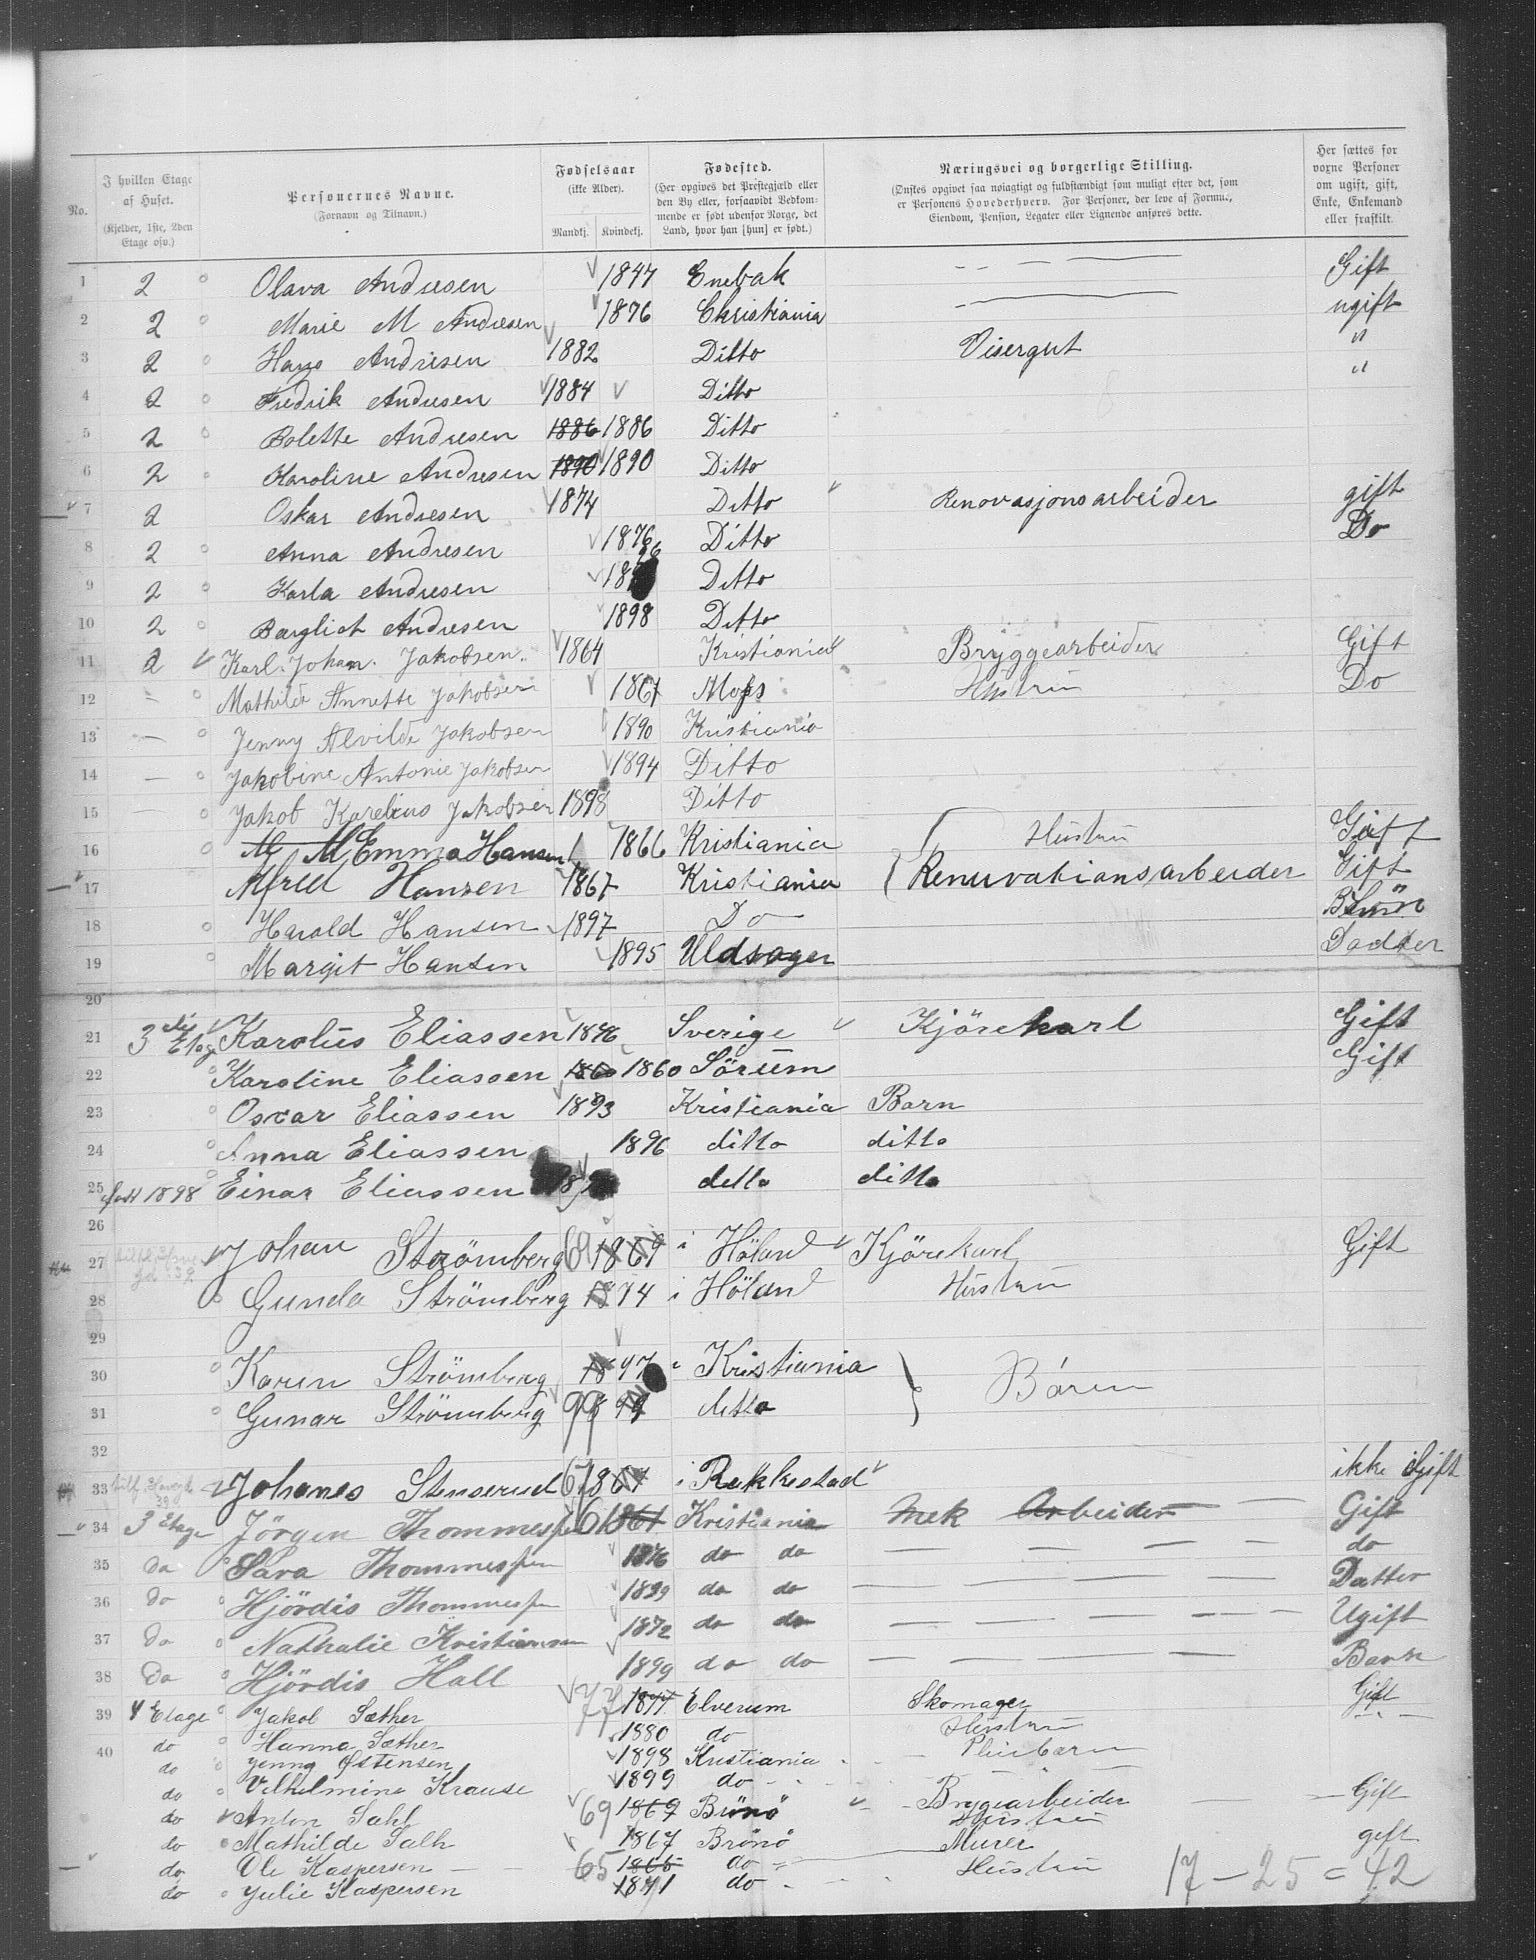 No. | I hvilken Etage af Huset. (Kjelder, 1ste, 2den Etage osv.) | Personernes Navne. (Fornavn og Tilnavn.) | Fødselsaar (ikke Alder). Mandkj. Kvindekj. | Fødested. (Her opgives det Præstegjæld eller den By eller, forsaavidt Vedkommende er født udenfor Norge, det Land, hvor han [hun] er født.) | Næringsvei og borgerlige Stilling. (Ønskes opgivet saa nøiagtigt og fuldstændigt som muligt efter det, som er Personens Hovederhverv. For Personer, der leve af Formue, Eiendom, Pension, Legater eller Lignende anføres dette. | Her sættes for voxne Personer om ugift, gift, Enke, Enkemand eller fraskilt.
1 2 Olava Andresen 1844 Enebak Gift
2 2 Marie M Andresen 1876 Christiania ugift
3 2 Hans Andresen 1882 Ditto Visergut "
4 2 Fredrik Andresen 1884 Ditto "
5 2 Bolette Andresen 1886 1886 Ditto
6 2 Karoline Andresen 1890 1890 Ditto
7 2 Oskar Andresen 1874 Ditto Renovasjonsarbeider gift
8 2 Anna Andresen 1876 Ditto Do
9 2 Karla Andresen 18 96 Ditto
10 2 Andresen 1898 Ditto
11 2 Karl Johan Jakobsen 1864 Kristiania Bryggearbeider Gift
12 — Mathilde Annette Jakobsen 1861 Moss Hustru Do
13 — Jenny Alvilde Jakobsen 1890 Kristiania
14 — Jakobine Antonie Jakobsen 1894 Ditto
15 — Jakob Karelius Jakobsen 1898 Ditto
16 M Emma Hansen 1866 Kristiania Hustru Gift
17 Alfred Hansen 1867 Kristiania Renuvationsarbeider Gift
18 Harald Hansen 1897 Do Sön
19 Margit Hansen 1895 Uldsager Dadter
20
21 3die Etage Karolüs Eliassen 1846 Sverige Kjörekarl Gift
22 Karoline Eliassen 1860 1860 Sörum Gift
23 Oscar Eliassen 1893 Kristiania Barn
24 Anna Eliassen 1896 ditto ditto
25 født 1898 Einar Eliassen 18 ditto ditto
26
27 Johan Strömberg 69 1869 i Höland Kjörekarl Gift
28 Gunda Strömberg 1874 i Höland Hustru
29
30 Karen Strömberg 1897 i Kristiania Bören
31 Gunar Strömberg 99 99 ditto
32
33 Johanes Stenserud 67 1867 i Rakkestad ikke Gift
34 3 Etage Jörgen Thommessen 61 1861 Kristiania Mek Arbeider Gift
35 Do Sara Thommessen 1876 do do do
36 Do Hjördis Thommessen 1899 do do Datter
37 Do Nathalie Kristiansen 1872 do do Ugift
38 Do Hjördis Hall 1899 do do Barn
39 4 Etage Jakob Sæther 77 1877 Elverum Skomager Gift
do Hanna Sæther 1880 do Hustru
40 do Jenny Østensen 1898 Kristiania Pleiebarn
do Vilhelmine Krause 1899 do
do Anton Sahl 69 1869 Brönö Brygearbeider Gift
do Mathilde Salh 1867 Brönö Hustru
do Ole Kaspersen 65 1865 do Murer gift
do Julie Kaspersen 1871 do Hustru
17 — 25 = 42